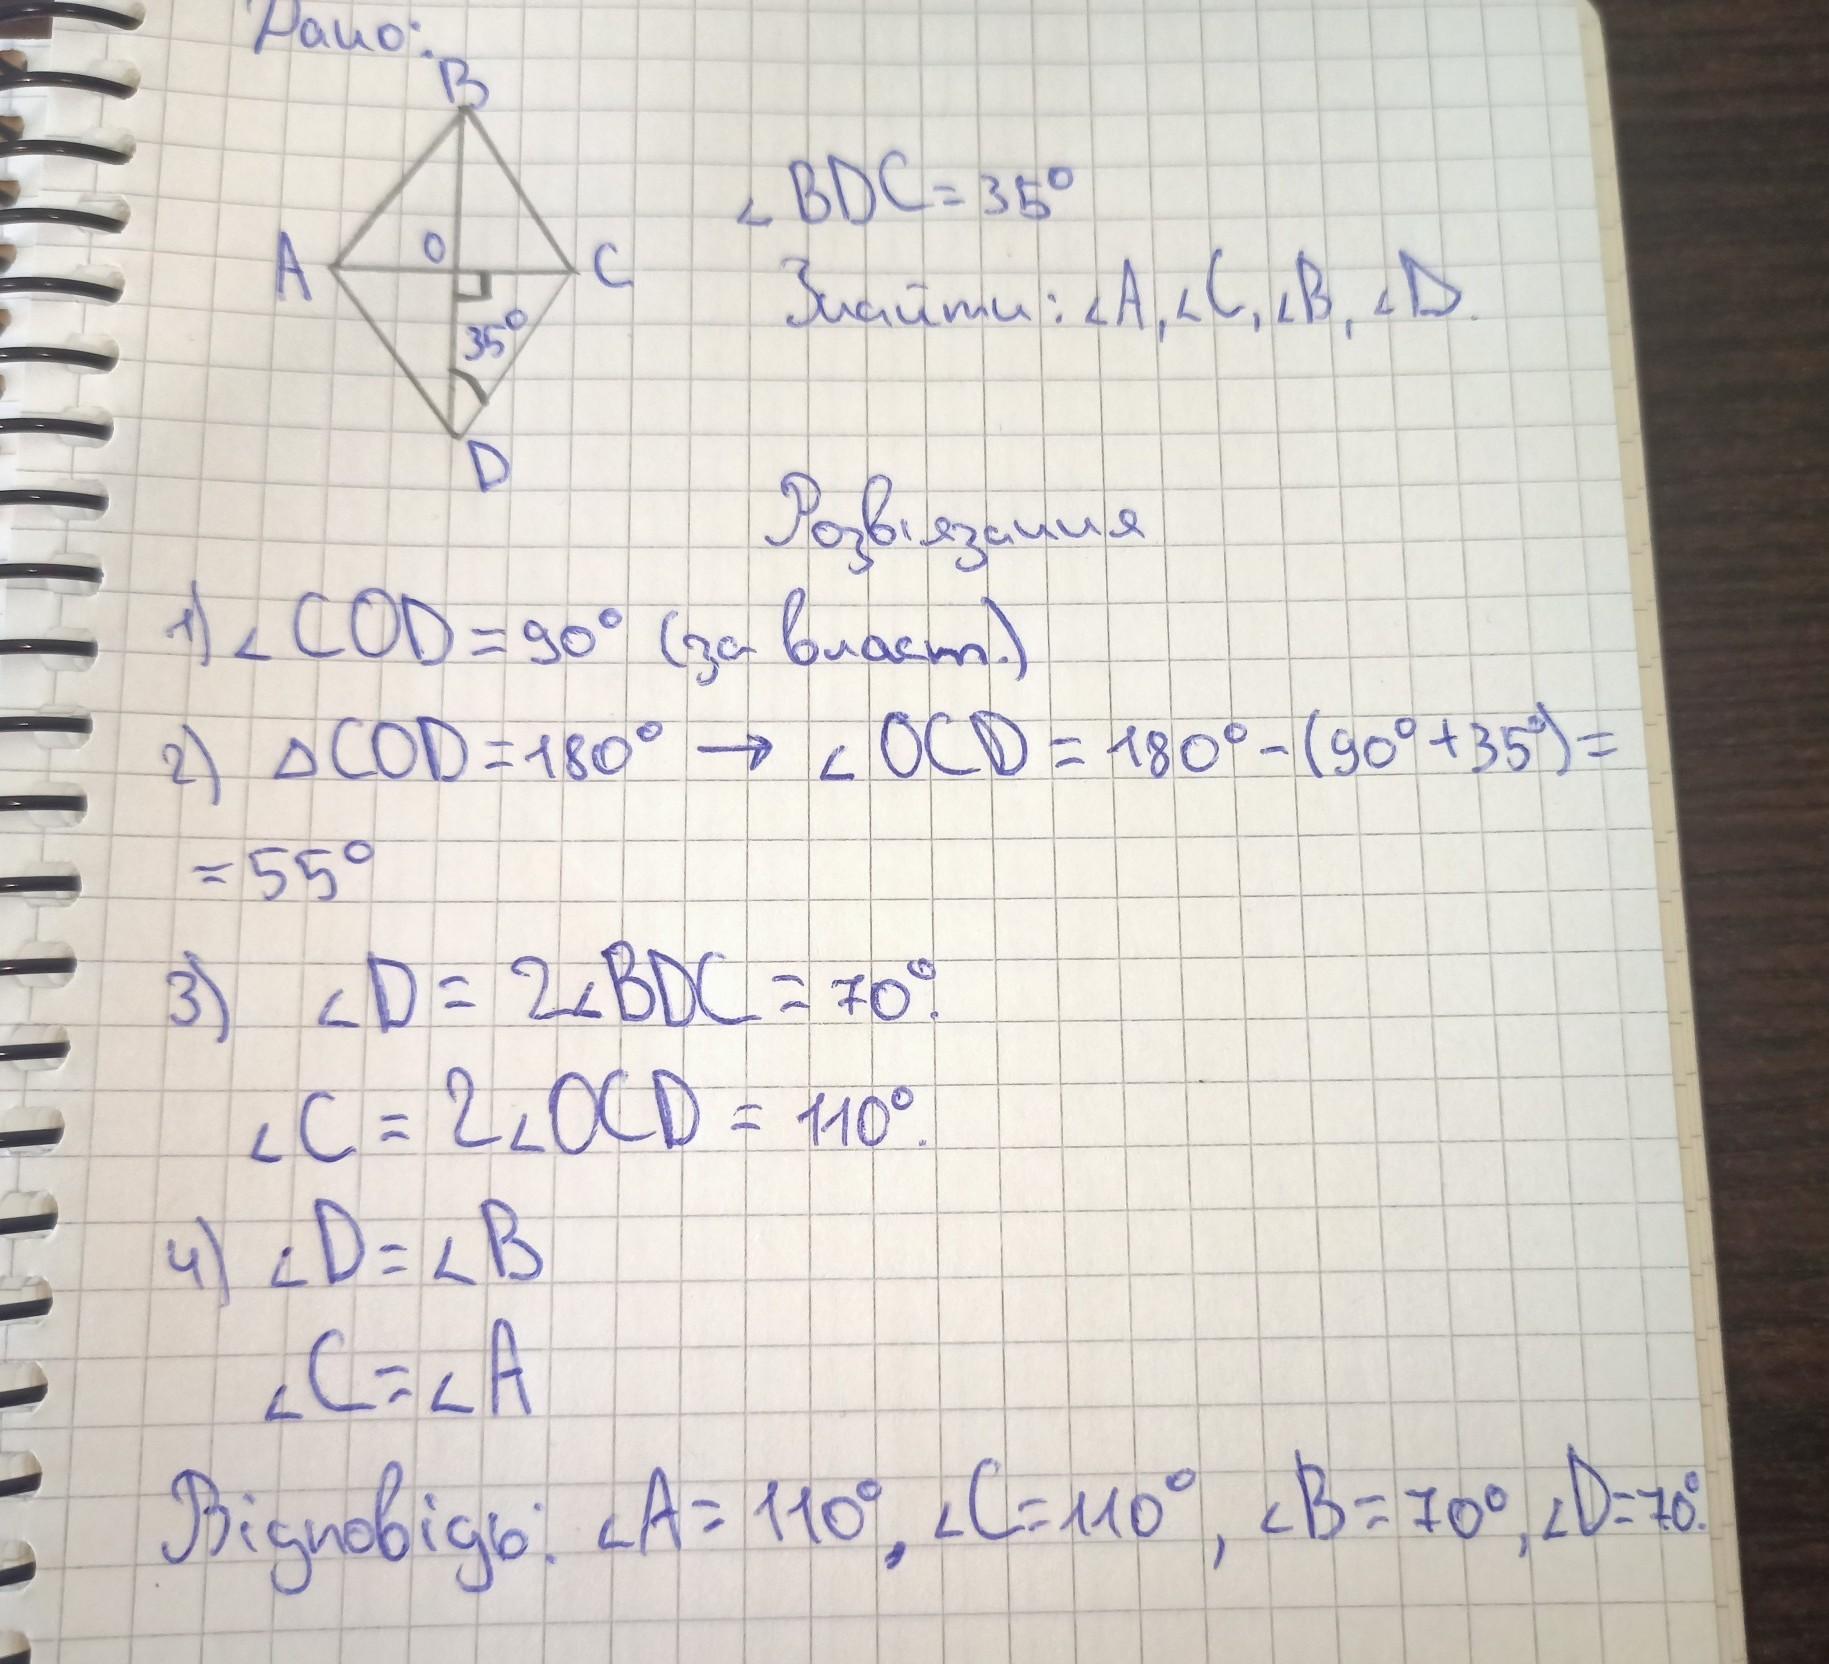 Дано:
B
A
O
C
35°
D
∠BDC = 35°
Знайти: ∠A, ∠C, ∠B, ∠D.
Розв'язання
1) ∠COD = 90° (за власт.)
2) △COD = 180° → ∠OCD = 180° - (90° + 35°) =
= 55°
3) ∠D = 2∠BDC = 70°.
∠C = 2∠OCD = 110°.
4) ∠D = ∠B
∠C = ∠A
Відповідь: ∠A = 110°, ∠C = 110°, ∠B = 70°, ∠D = 70°.